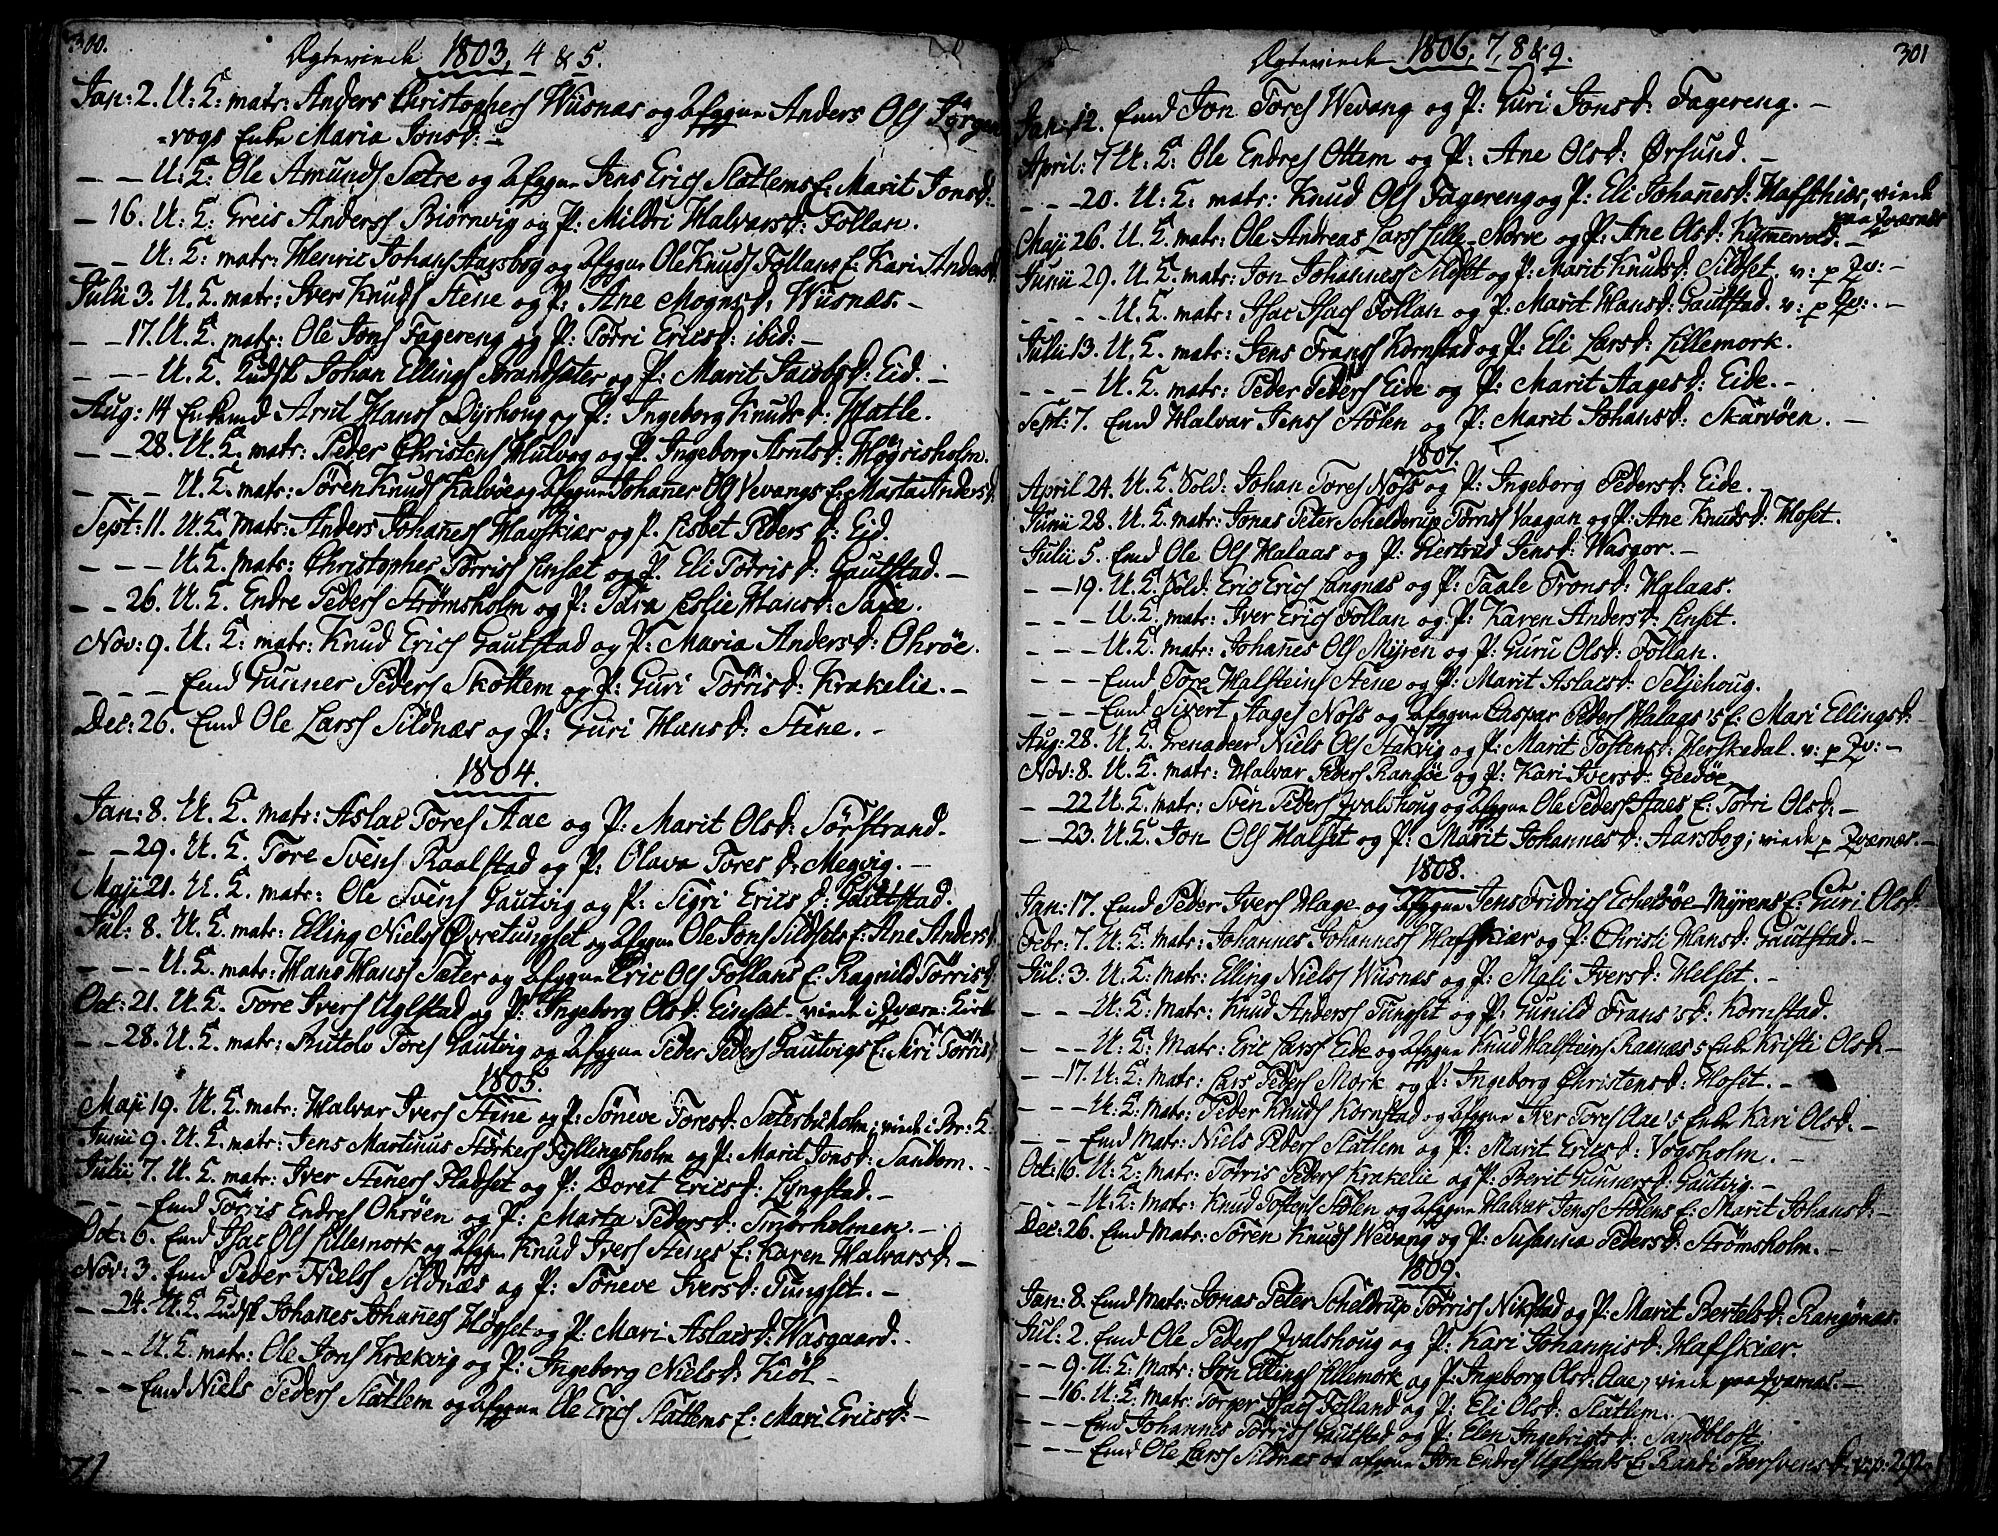 300.
Ægteviede 1803, 4 & 5.
Jan: 2. U: K: matr: Anders Christophers Wusnæs og afggne Anders Ols Jörgen
=vogs Enke Maria Jonsd: -
- - U: K: Ole Amunds Sætre og afggne Jens Erics Slatlems E: Marit Jonsd: -
- 16. U: K: Greis Anders Biørnvig og P: Mildri Halvarsd: Follan.
- - U: K: matr: Henric Johans Aarsbog og afggne Ole Knuds Follans E: Kari Andersd
Julii 3. U. K. matr: Iver Knuds Stene og P: Ane Mognsd: Wusnæs. -
- - 17. U. K. matr: Ole Jons Fagereng og P: Törri Ericsd: ibid: -
- - - U. K. Johan Ellings Strandsæter og P: Marit Jacobsd: Eid. -
Aug: 14 Enkemd Arnt Hans Dyrhoug og P: Ingeborg Knuds d: Hatle.
- - 28. U. K. matr: Peder Christens Hulvog og P. Ingeborg Arntsd: Høgrisholm.
- - - U. K. matr: Sören Knuds Kalvöe og afggne Johanes Ols Vevangs E: Marta Andersd
Sept: 11. U. K. matr: Anders Johanes Hafskiær og P. Lisbet Peders d: Eid.
- - - U. K. matr: Christopher Törris Linset og P. Eli Törris d: Gautstad. -
- - 26. U. K. Endre Peders Strømsholm og P: Hans d:
Nov: 9. U. K: matr: Knud Erics Gautstad og P: Maria Anders d: Ohrøe.
- - - Emd Gunner Peders Skottem og P: Guri Törris d: Krakelie. -
Dec: 26. Emd Ole Lars Sildnæs og P: Guri Hans d: Stene. -
1804.
Jan: 8. U. K. matr: Aslac Tores Aae og P: Marit Olsd: Sörstrand.
- - 29. U. K. Tore Svens Raalstad og P: Olava Tores d: Megvig. -
Maji 21. U. K. matr: Ole Svens Gautvig og P: Sigri Erics d: Gautstad.
Jul: 8. U. K. matr: Elling Niels Øvretungset og afggne Ole Jons Sildsets E: Ane Andersd.
- - - U. K. matr: Hans Hans Sæter og afggne Eric Ols Follans E. Ragnild Törrisd
Oct: 21. U. K. Tore Ivers Uglstad og P: Ingeborg Olsd: Einset - viede i Qværn: Kirke
- - 28. U. K. matr: Rutolv Tores Gautvig og afggne Peder Peders Gautvigs E: Siri Törrisd
1805.
Maji 19. U. K. matr: Halvar Ivers Stene og P: Söneve Toresd: Sæterbuholm; viede i Br: K.
Junii 9. U. K. matr: Jens Martinus Störkers Fyllingsholm og P: Marit Jonsd: Sandem. -
Julii 7. U. K. matr: Iver Steners Fladset og P: Doret Ericsd: Lyngstad. -
- - - Emd Törris Endres Ohröen og P: Marta Pedersd: Smörholmen. -
Oct: 6. Emd Isac Ols Lillemork og afggne Knud Ivers Stenes E: Karen Halvarsd: -
Nov: 3. Emd Peder Niels Sildnæs og P: Söneve Iversd: Tungset. -
- - 24. U. K. Johanes Johanes Høgset og P: Mari Aslacsd: Wasgaard. -
- - - U. K. matr: Ole Jons Krækvig og P: Ingeborg Nielsd: Kiöl -
- - - Emd Niels Peders Slatlem og afggne Ole Erics Slatlems E: Mari Ericsd: -
301
Ægteviede 1806, 7, 8 & 9.
Jan: 12. Emd Jon Tores Wevang og P: Guri Jonsd: Fagereng. -
April: 7 U: K: Ole Endres Ottem og P: Ane Olsd: Ørsund. -
- - - 20. U. K. matr: Knud Ols Fagereng og P: Eli Johanesd: Hafskiær, viede
paa Qværnæs
Maji 26. U. K. matr: Ole Andreas Lars Lille-Norve og P: Ane Olsd: -
Junii 29. U. K. matr: Jon Johannes Sildset og P: Marit Knudsd: Sildset. v: p Qv: -
- - - U. K. matr: Isac Isacs Follan og P: Marit Hansd: Gautstad. v: p Qv: -
Julii 13. U. K. matr: Jens Frans Kornstad og P: Eli Larsd: Lillemork.
- - - U. K. matr: Peder Peders Eide og P: Marit Aagesd: Eide. -
Sept: 7. Emd Halvar Jens Stölen og P: Marit Johansd: Skarvöen. -
1807.
April 24. U. K. Sold: Johan Tores Noss og P: Ingeborg Pedersd: Eide. -
Junii 28. U. K. matr: Jonas Peter Schelderup Törris Vaagan og P: Ane Knudsd: Hoset.
Julii 5. Emd Ole Ols Halaas og P: Giertrud Jensd: Wasgor. -
- - 19. U. K. Sold: Eric Erics Langnæs og P: Taale Tronsd: Halaas.
- - - U. K. matr: Iver Erics Follan og P: Karen Andersd: Linset.
- - - U. K. matr: Johanes Ols Myren og P: Guru Olsd: Follan.
- - - Emd Tore Halsteins Stene og P: Marit Aslacsd: Seljehoug.
- - - Emd Sivert Aages Noss og afggne Caspar Peders Halaas's E: Mari Ellingsd: -
Aug: 28. U. K. Grenadeer Niels Ols Stakvig og P: Marit Tostensd: Herskedal. v: p Qv: -
Nov: 8. U. K. matr: Halvar Peders Ranöe og P: Kari Iversd: Geedöe
- - 22 U. K. matr: Sven Peders Qvalshoug og afggne Ole Peders Staes E: Törri Olsd: -
- - 23. U. K. Jon Ols Halset og P: Marit Johannesd: Aarsbog; viede p Qværnæs. -
1808.
Jan: 17. Emd Peder Ivers Hage og afggne Jens Fridrics Echelsöe-Myrens E: Guri Olsd:
Febr: 7. U: K: Matr: Johannes Johannes Hafskiær og P: Christi Hansd: Gautstad. -
Jul: 3. U: K: Matr: Elling Niels Wusnæs og P: Mali Iversd: Helset. -
- - - U: K: Matr: Knud Anders Tungset og P: Gunild Frans's d: Kornstad.
- - - U: K: Matr: Eric Lars Eide og afggne Knud Halsteins Raanæs's Enke Kristi Olsd: -
- - 17. U: K: Matr: Lars Peders Mork og P: Ingeborg Christensd: Hoset. -
- - - U: K: Matr: Peder Knuds Kornstad og afggne Iver Tores Aae's Enke Kari Olsd: -
- - - Emd Matr: Niels Peders Slatlem og P: Marit Ericsd: Vogsholm. -
Oct: 16. U: K: Matr: Törris Peders Krakelie og P: Berit Gunnersd: Gautvig. -
- - - U: K: Matr: Knud Tostens Stölen og afggne Halvar Jens Stölens E: Marit Johansd: -
Dec: 26. Emd Matr: Sören Knuds Wevang og P: Susanna Pedersd: Strømsholm. -
1809.
Jan: 8. Emd Matr: Jonas Peter Scheldrup Törris Nikstad og P: Marit Bertelsd: Rangønæs.
Jul: 2. Emd Ole Peders Qvalshoug og P: Kari Johannisd: Hafskiær.
- - 9. U: K: Matr: Jon Ellings Lillemork og P: Ingeborg Olsd: Aae; viede paa Qværnæs. -
- - 16. U: K: Matr: Torger Isacs Follan og P: Eli Olsd: Slatlem.
- - - Emd Johannes Törris Gautstad og P: Elen Ingebrigtsd: Sandblost.
- - - Emd Ole Lars Sildnæs og afggne Jon Endres Uglstads E: Raadi Bersvensd: v: p: 292.